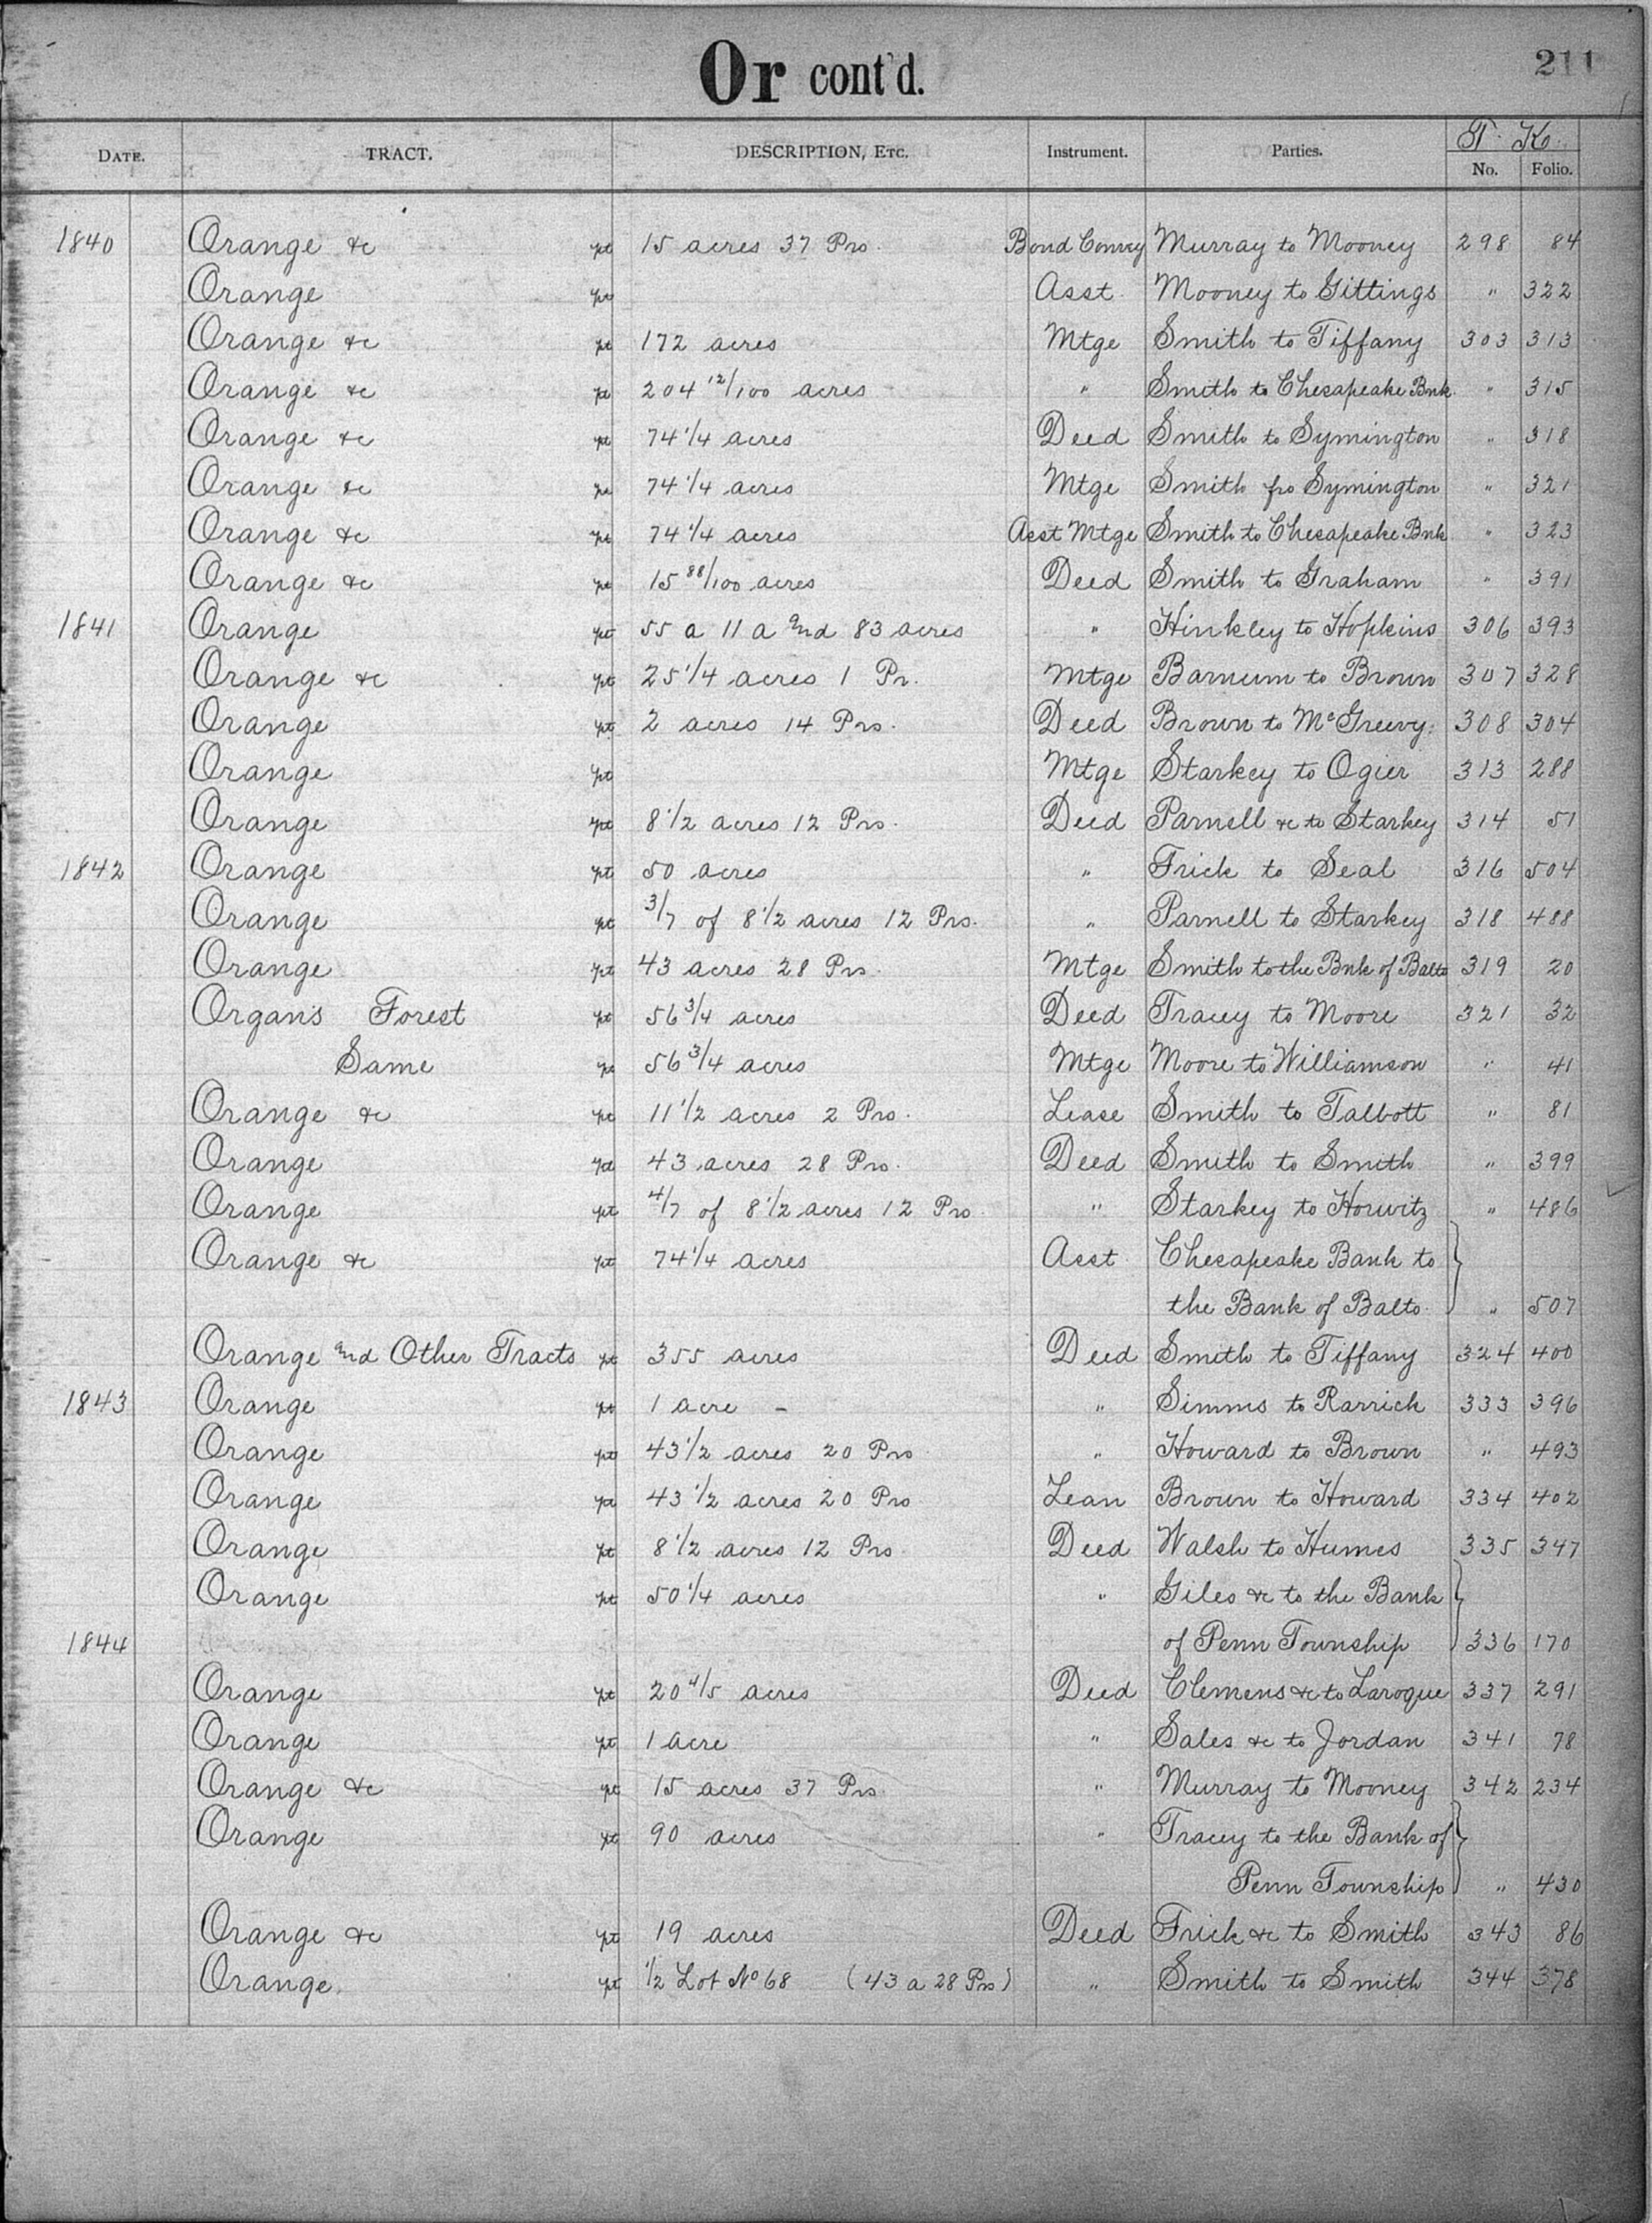 Or cont'd.
211
DATE. TRACT. DESCRIPTION, ETC. Instrument. Parties. T. K. No. Folio.
1840 Orange &c pt 15 acres 37 Prs. Bond Convey Murray to Mooney 298 84
Orange pt Asst. Mooney to Gittings " 322
Orange &c pt 172 acres Mtge Smith to Tiffany 303 313
Orange &c pt 204 12/100 acres " Smith to Chesapeake Bnk. " 315
Orange &c pt 74 1/4 acres Deed Smith to Symington " 318
Orange &c pt 74 1/4 acres Mtge Smith fro Symington " 321
Orange &c pt 74 1/4 acres Asst Mtge Smith to Chesapeake Bnk " 323
Orange &c pt 15 88/100 acres Deed Smith to Graham " 391
1841 Orange pt 55 a 11 a And 83 acres " Hinkley to Hopkins 306 393
Orange &c pt 25 1/4 acres 1 Pr. Mtge Barnum to Brown 307 328
Orange pt 2 acres 14 Prs. Deed Brown to McGreevy. 308 304
Orange pt Mtge Starkey to Ogier 313 288
Orange pt 8 1/2 acres 12 Prs. Deed Parnell &c to Starkey 314 51
1842 Orange pt 50 acres " Frick to Seal 316 504
Orange pt 3/7 of 8 1/2 acres 12 Prs. " Parnell to Starkey 318 488
Orange pt 43 acres 28 Prs. Mtge Smith to the Bnk of Balto 319 20
Organ's Forest pt 56 3/4 acres Deed Tracey to Moore 321 32
Same pt 56 3/4 acres Mtge Moore to Williamson " 41
Orange &c pt 11 1/2 acres 2 Prs. Lease Smith to Talbott " 81
Orange pt 43 acres 28 Prs. Deed Smith to Smith " 399
Orange pt 4/7 of 8 1/2 acres 12 Prs " Starkey to Horwitz " 486
Orange &c pt 74 1/4 acres Asst Chesapeake Bank to
the Bank of Balto. " 507
Orange And Other Tracts pt 355 acres Deed Smith to Tiffany 324 400
1843 Orange pt 1 acre - " Simms to Rarrick 333 396
Orange pt 43 1/2 acres 20 Prs " Howard to Brown " 493
Orange pt 43 1/2 acres 20 Prs Lean Brown to Howard 334 402
Orange pt 8 1/2 acres 12 Prs Deed Walsh to Humes 335 347
Orange pt 50 1/4 acres " Giles &c to the Bank
1844 of Penn Township 336 170
Orange pt 20 4/5 acres Deed Clemens &c to Laroque 337 291
Orange pt 1 acre " Sales &c to Jordan 341 78
Orange &c pt 15 acres 37 Prs. " Murray to Mooney 342 234
Orange pt 90 acres " Tracey to the Bank of
Penn Township " 430
Orange &c pt 19 acres Deed Frick &c to Smith 343 86
Orange. pt 1/2 Lot No 68 (43 a 28 Prs) " Smith to Smith 344 378